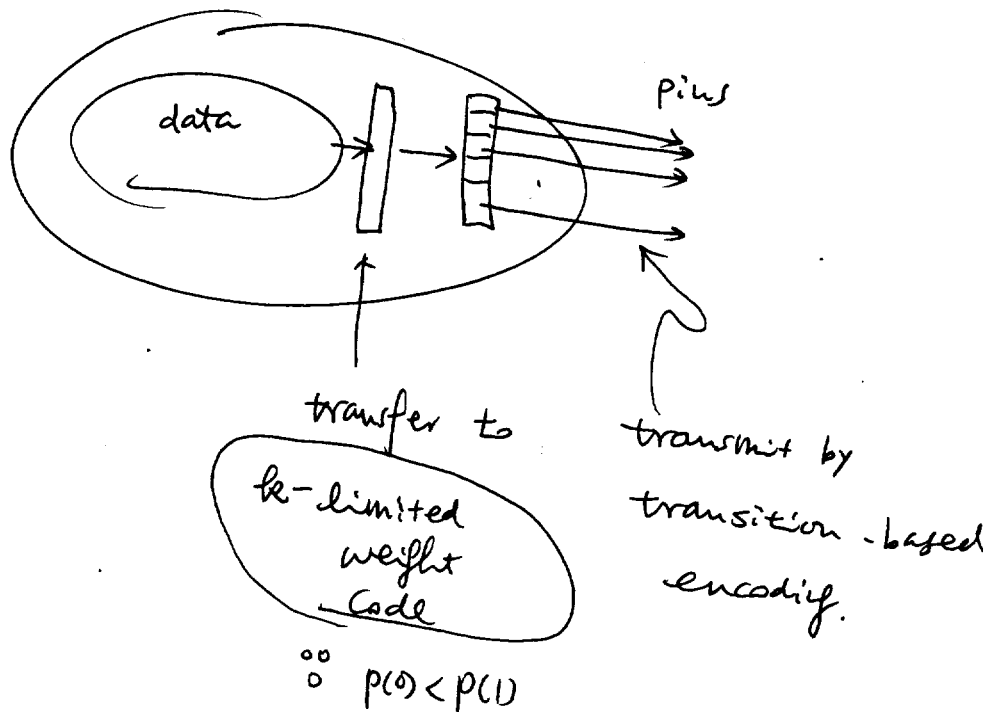 data
pins
transfer to
k-limited
weight
Code
p(0) < p(1)
transmit by
transition-based
encoding.